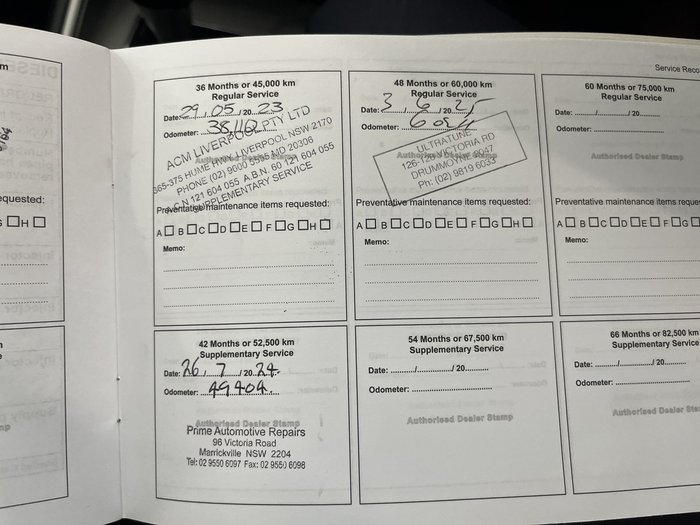 Service Reco
36 Months or 45,000 km
Regular Service
Date: 29 / 05 / 20 23
Odometer: 38,112
ACM LIVERPOOL PTY LTD
365-375 HUME HWY LIVERPOOL NSW 2170
PHONE (02) 9600 MD 20308
A.C.N 121 604 055 A.B.N. 60 121 604 055
SUPPLEMENTARY SERVICE
Authorised Dealer Stamp
Preventative maintenance items requested:
A B C D E F G H
Memo:
48 Months or 60,000 km
Regular Service
Date: 3 / 6 / 20 25
Odometer:
Authorised Dealer Stamp
ULTRATUNE
VICTORIA RD
DRUMMOYNE
Ph: (02) 9819 6033
Preventative maintenance items requested:
A B C D E F G H
Memo:
60 Months or 75,000 km
Regular Service
Date: / / 20
Odometer:
Authorised Dealer Stamp
Preventative maintenance items reque
A B C D E F G
Memo:
equested:
G H
42 Months or 52,500 km
Supplementary Service
Date: 26 / 7 / 20 24
Odometer: 49404
Authorised Dealer Stamp
Prime Automotive Repairs
96 Victoria Road
Marrickville NSW 2204
Tel: 02 9550 6097 Fax: 02 9550 6098
54 Months or 67,500 km
Supplementary Service
Date: / / 20
Odometer:
Authorised Dealer Stamp
66 Months or 82,500 km
Supplementary Service
Date: / / 20
Odometer:
Authorised Dealer Sta